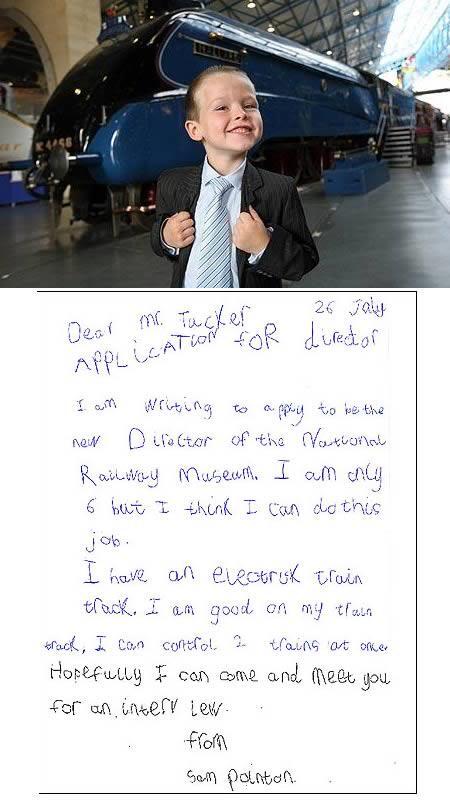 4468
26 July
Dear Mr. Tucker
APPLiCATiON FOR director
I am writing to apply to be the
new Director of the National
Railway Museum. I am only
6 but I think I can do this
job.
I have an electrik train
track. I am good on my train
track, I can control 2 trains at once.
Hopefully I can come and meet you
for an interview.
from
Sam Pointon.